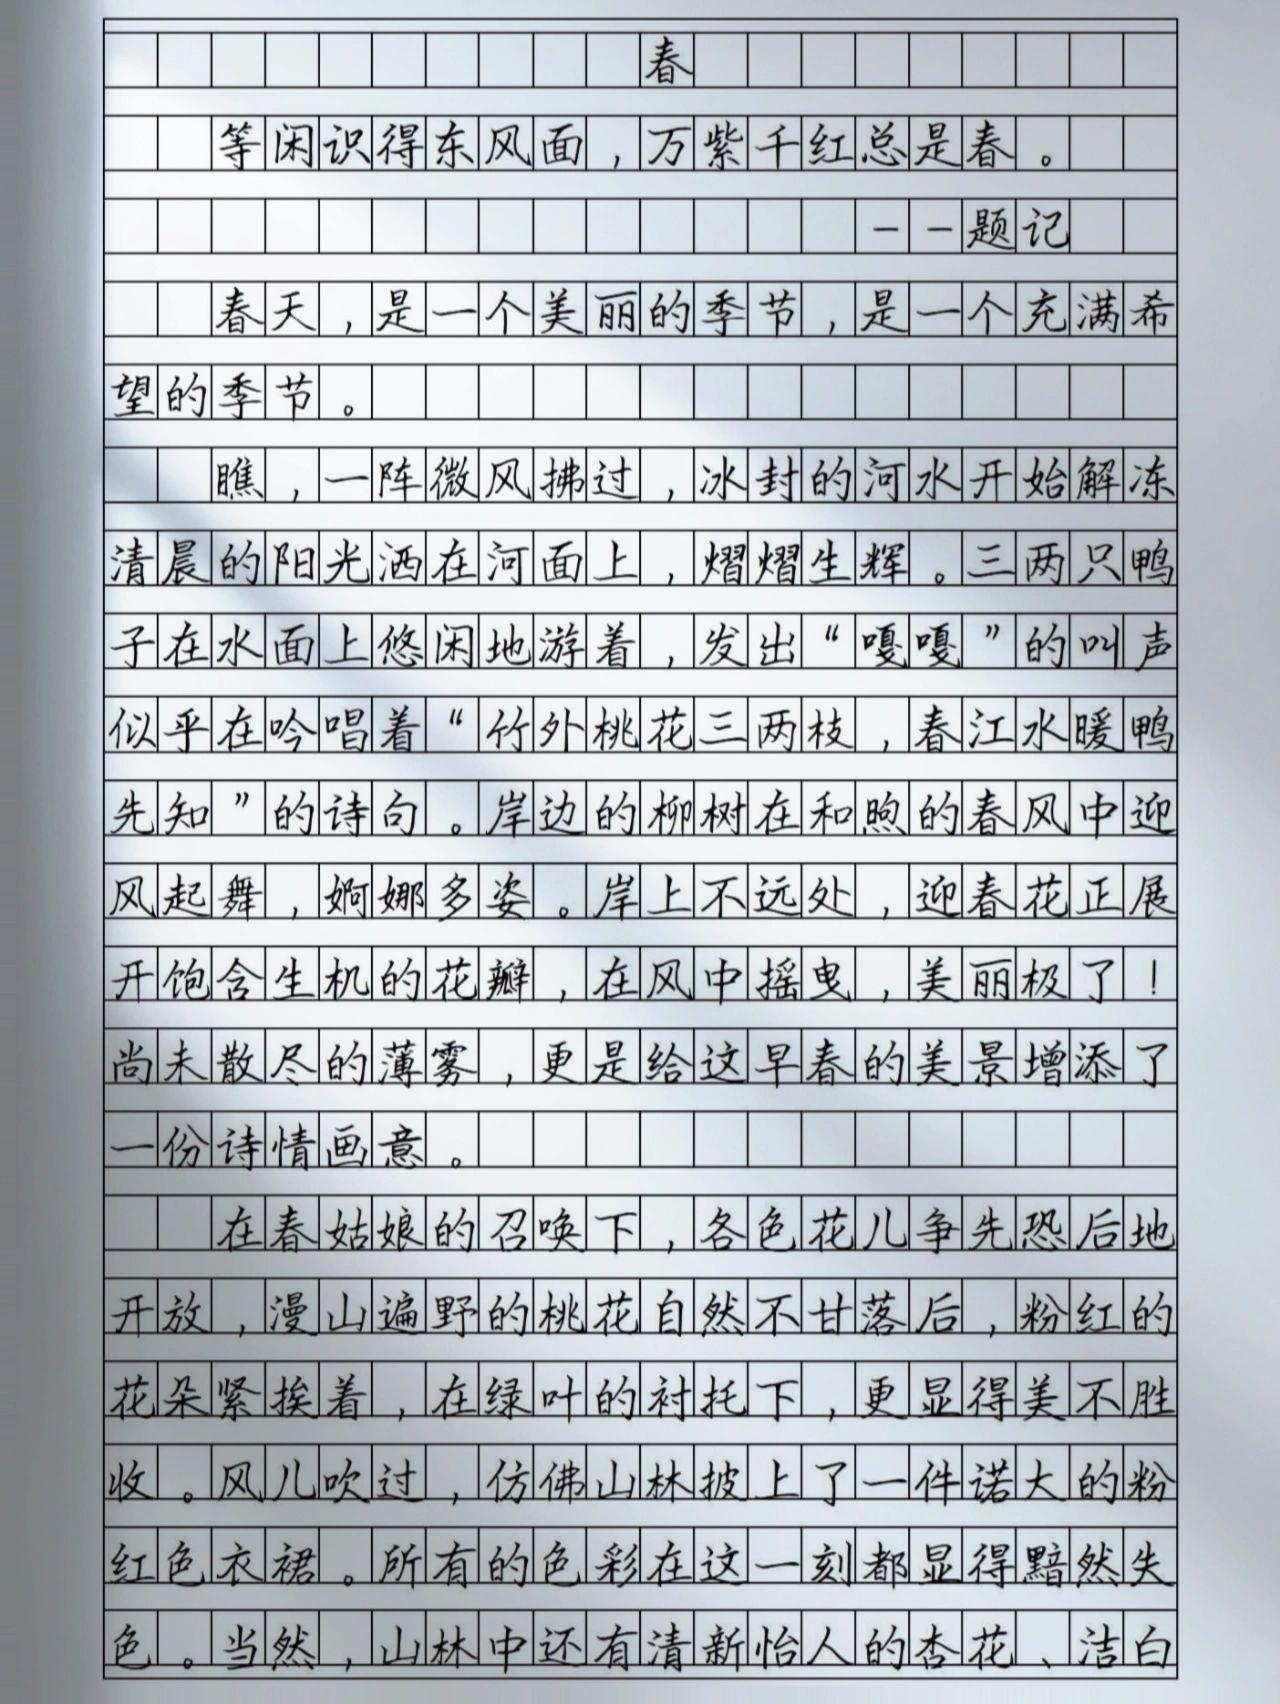 春
等闲识得东风面，万紫千红总是春。
——题记
春天，是一个美丽的季节，是一个充满希
望的季节。
瞧，一阵微风拂过，冰封的河水开始解冻
清晨的阳光洒在河面上，熠熠生辉。三两只鸭
子在水面上悠闲地游着，发出“嘎嘎”的叫声
似乎在吟唱着“竹外桃花三两枝，春江水暖鸭
先知”的诗句。岸边的柳树在和煦的春风中迎
风起舞，婀娜多姿。岸上不远处，迎春花正展
开饱含生机的花瓣，在风中摇曳，美丽极了！
尚未散尽的薄雾，更是给这早春的美景增添了
一份诗情画意。
在春姑娘的召唤下，各色花儿争先恐后地
开放，漫山遍野的桃花自然不甘落后，粉红的
花朵紧挨着，在绿叶的衬托下，更显得美不胜
收。风儿吹过，仿佛山林披上了一件诺大的粉
红色衣裙。所有的色彩在这一刻都显得黯然失
色。当然，山林中还有清新怡人的杏花、洁白